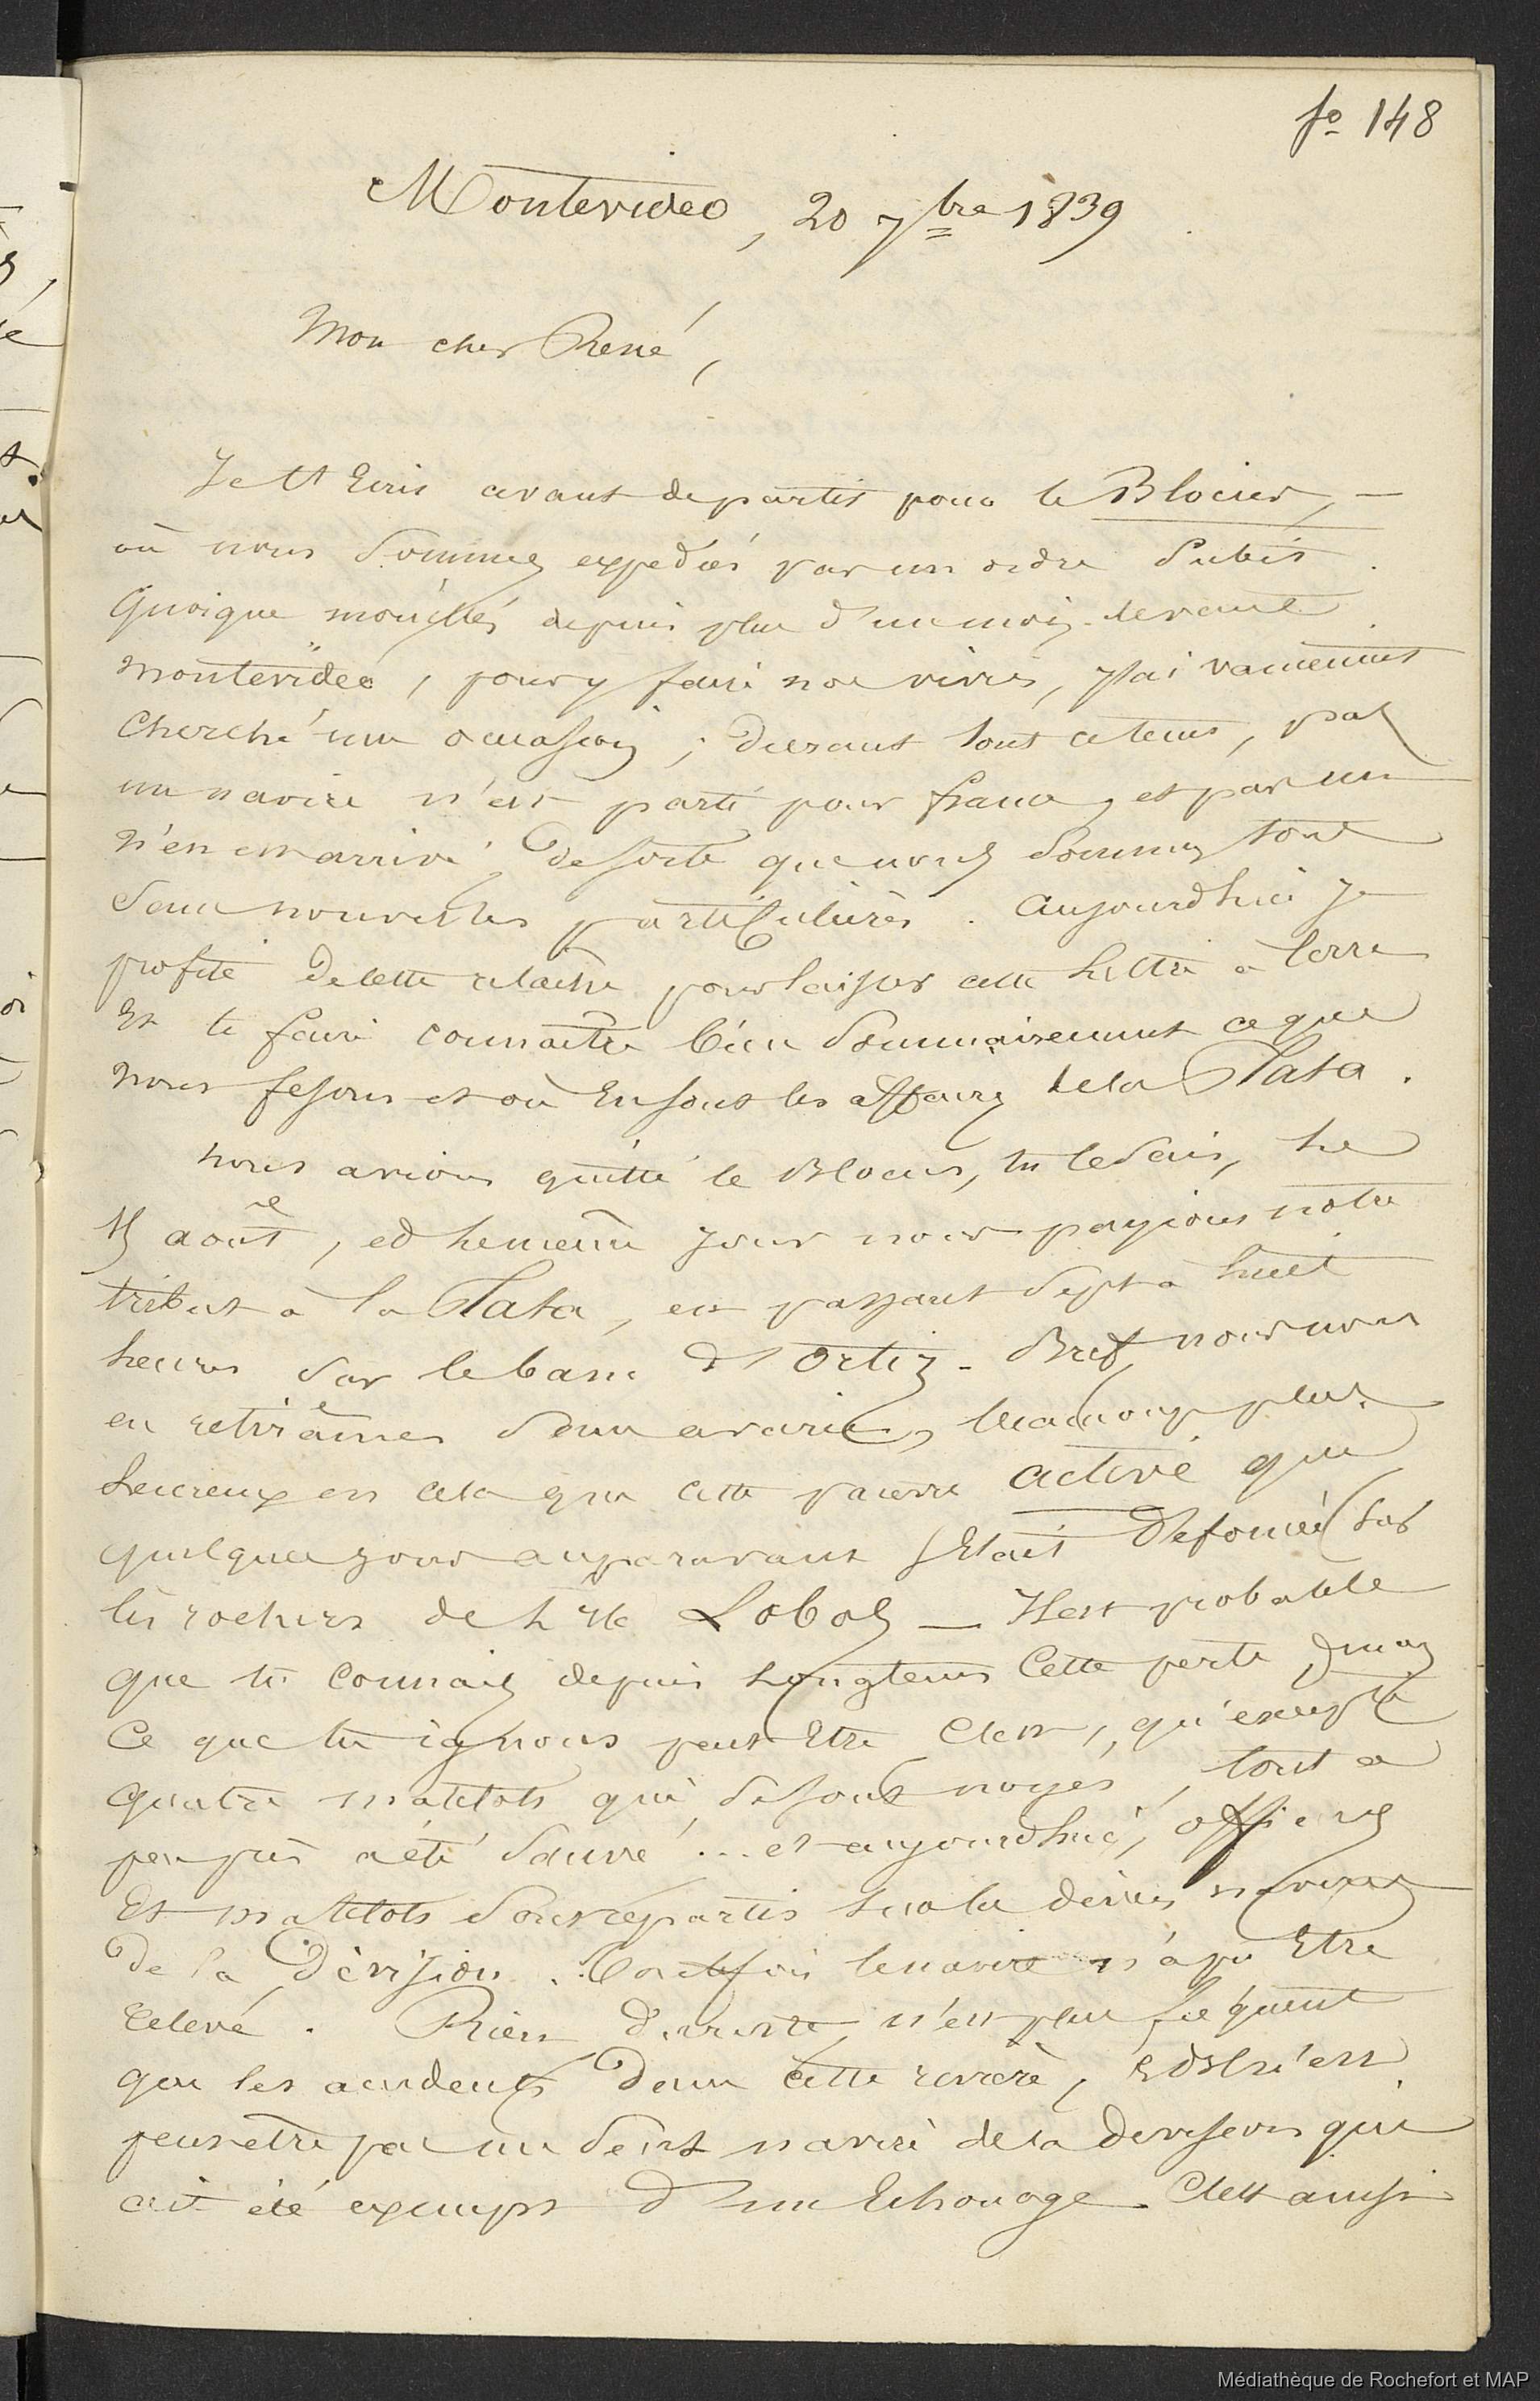 fo 148
Montevideo, 20 7bre 1839
Mon cher René,
Je t'écris avant de partir pour le Blocus, —
où nous sommes expédiés par un ordre subit.
Quoique mouillés depuis plus d'un mois devant
Montevideo, pour y faire nos vivres, j'ai vainement
cherché une occasion ; durant tout ce tems, pas
un navire n'est parti pour france, et pas un
n'en est arrivé, de sorte que nous sommes tous
sans nouvelles particulières. Aujourd'hui je
profite de cette relâche pour laisser cette lettre à terre
Et te faire connaître bien sommairement ce que
nous fesons et où en sont les affaires de la Plata.
Nous avions quitté le Blocus, tu le sais, le
août, et le même jour nous payions notre
tribut à la Plata, en passant sept à huit
heures sur le banc d'Ortiz. Bref, nous nous
en retirâmes sans avaries, beaucoup plus
heureux en cela que cette pauvre active qui
quelques jours auparavant s'était défoncée sur
les rochers de l'île Lobos — Il est probable
que tu connais depuis longtems cette perte, mais
Ce que tu ignores peut être c'est, qu'excepté
quatre matelots qui se sont noyés, tout a
peu près a été sauvé... et aujourd'hui, officiers
Et matelots sont répartis sur les divers navires
De la Division. Toutefois le navire n'a pu être
relevé. Rien du reste n'est plus fréquent
que les accidents dans cette rivière, et il n'est
peut être pas un seul navire de la Division qui
ait été exempt d'un Echouage. C'est ainsi
Médiathèque de Rochefort et MAP